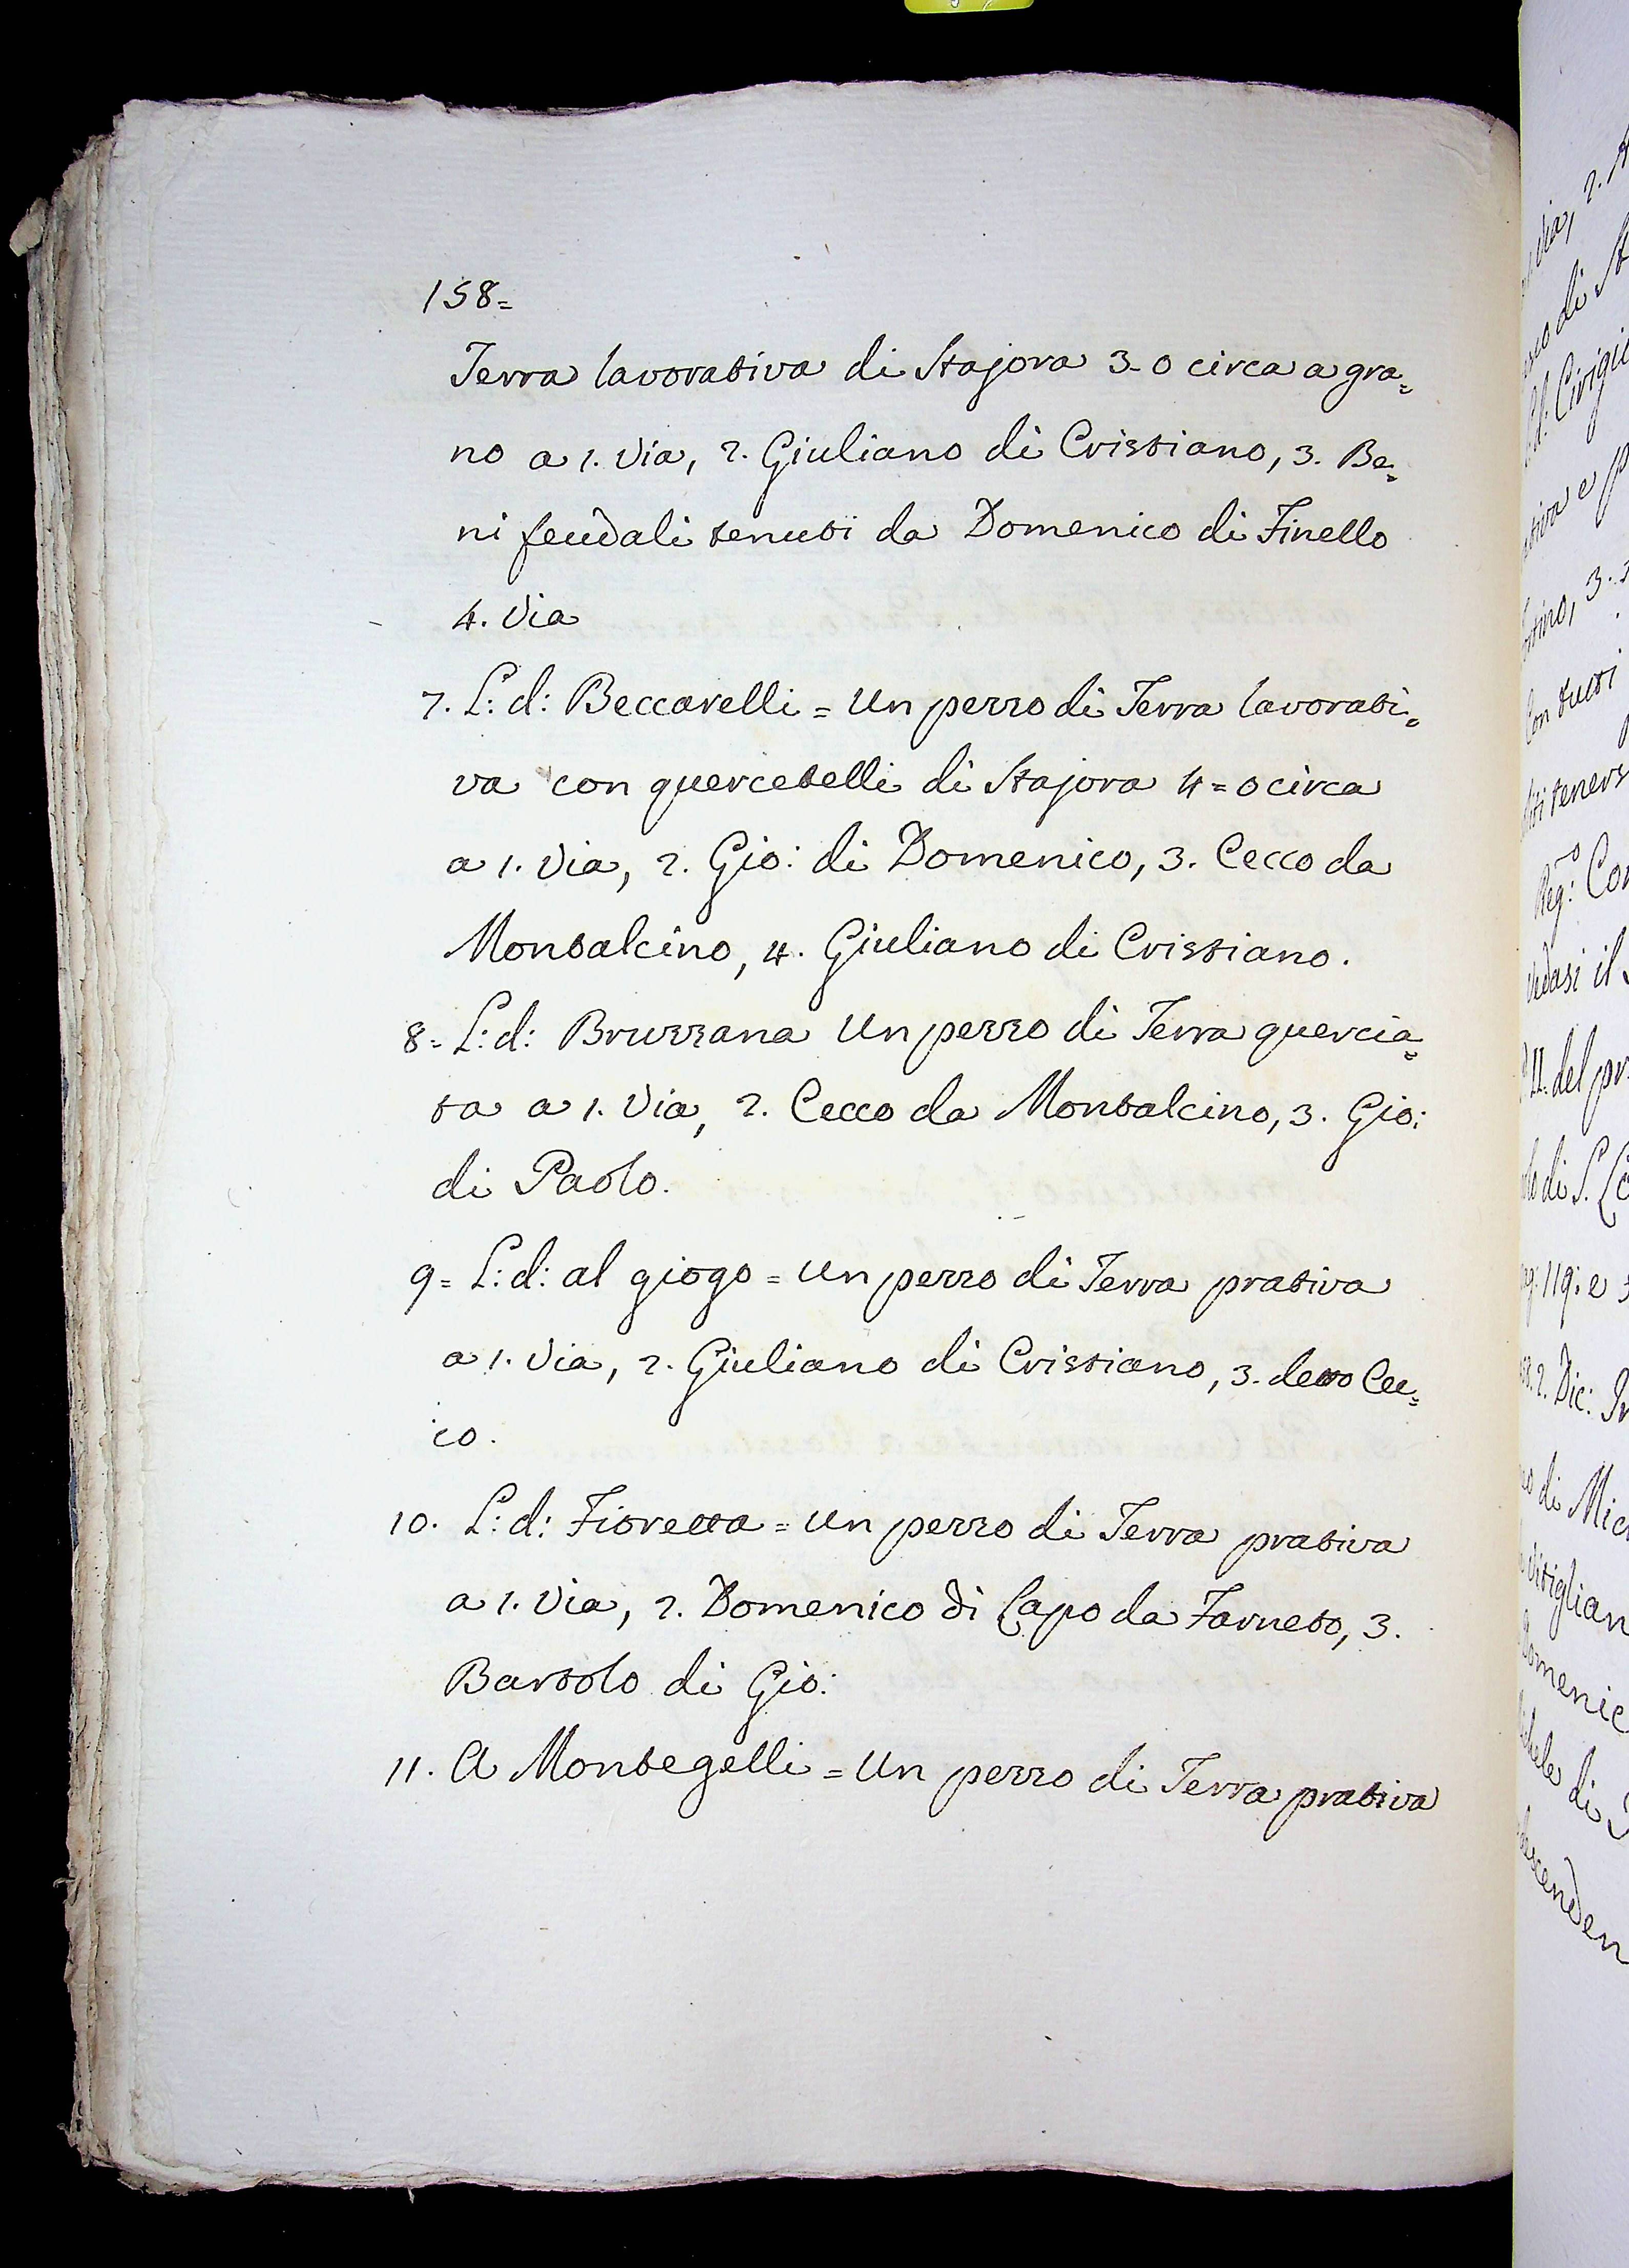 158=
Terra lavorativa di Stajora 3-0 circa a gra=
no a 1. Via, 2. Giuliano di Cristiano, 3. Be=
ni feudali tenuti da Domenico di Finello
4. Via
7. L: d: Beccarelli = Un pezzo di Terra lavorati=
va con quercetelli di Stajora 4=0 circa
a 1. Via, 2. Gio: di Domenico, 3. Cecco da
Montalcino, 4. Giuliano di Cristiano.
8= L: d: Bruzzana Un pezzo di Terra quercia=
ta a 1. Via, 2. Cecco da Montalcino, 3. Gio:
di Paolo.
9= L: d: al giogo = Un pezzo di Terra prativa
a 1. Via, 2. Giuliano di Cristiano, 3. detto Cec=
co.
10. L: d: Fioretta = Un pezzo di Terra prativa
a 1. Via, 2. Domenico di Capo da Farneto, 3.
Bartolo di Gio:
11. A Montegelli = Un pezzo di Terra prativa